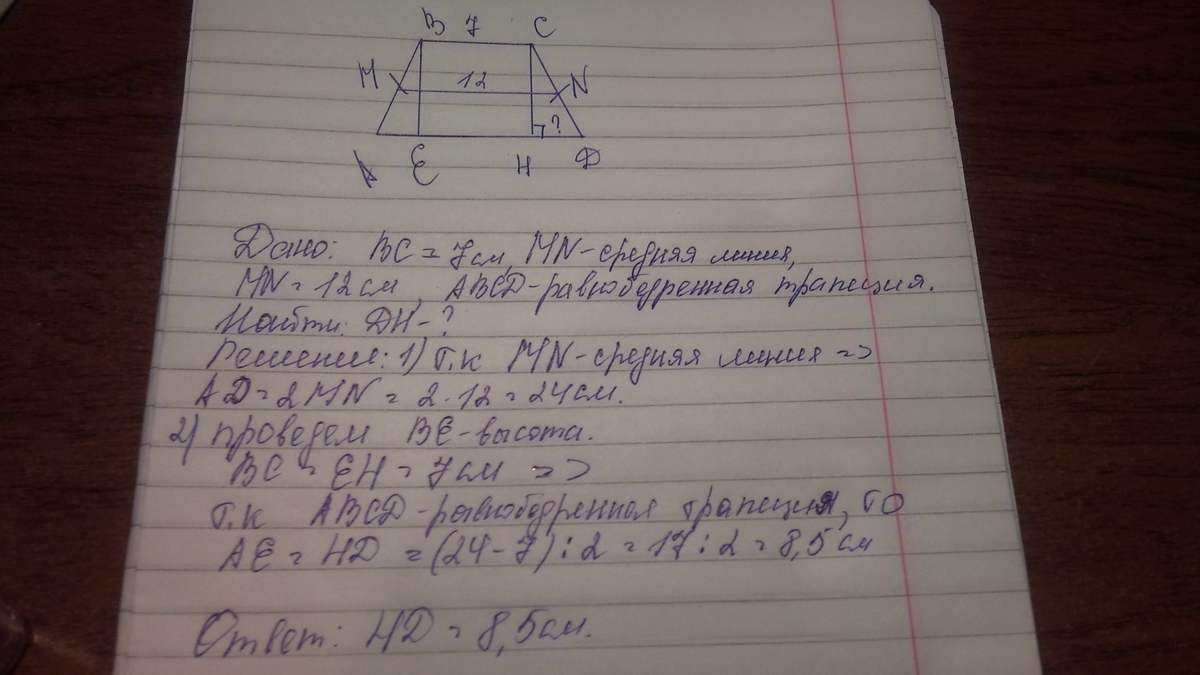 B 7 C
M 12 N
?
A E H D
Дано: BC = 7см, MN-средняя линия,
MN = 12см, ABCD-равнобедренная трапеция.
Найти: DH-?
Решение: 1) Т.к MN-средняя линия =>
AD = 2MN = 2·12 = 24см.
2) проведем BE-высота.
BC = EH = 7см =>
Т.к ABCD-равнобедренная трапеция, то
AE = HD = (24-7):2 = 17:2 = 8,5см
Ответ: HD = 8,5см.